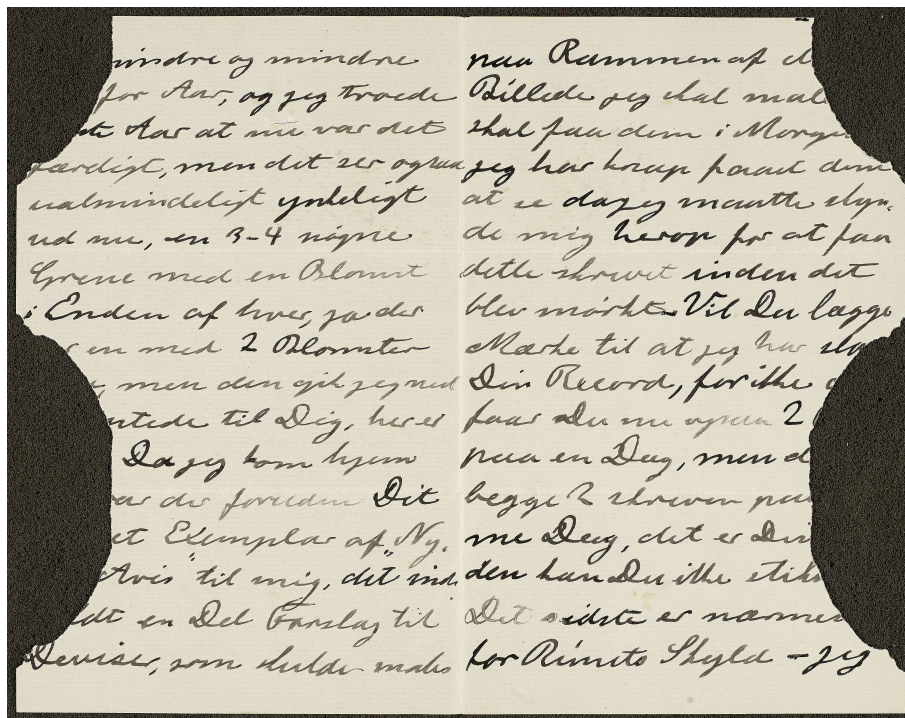 mindre og mindre
for Aar, og jeg troede
Aar at nu var det
færdigt, men det ser ogsaa
ualmindeligt ynkeligt
ud nu, en 3-4 nøgne
Grene med en Blomst
i Enden af hver, ja der
er en med 2 Blomster
men den gik jeg ned
hentede til Dig, her er
Da jeg kom hjem
var der foruden Dit
et Exemplar af „Ny.
Avis" til mig, det ind.
en Del Forslag til
Deviser, som skulde males
paa Rammen af d
Billede jeg skal mal
skal faa dem i Morge
jeg har knap faaet dem
at se da jeg maatte skyn.
de mig herop for at faa
dette skrevet inden det
blev mørkt. Vil Du lægge
Mærke til at jeg har sla
Din Record, for ikke
faar Du nu ogsaa 2
paa en Dag, men d
begge 2 skreven paa
me Dag, det er Din
den kan Du ikke stik
Det sidste er nærmes
for Rimets Skyld - jeg